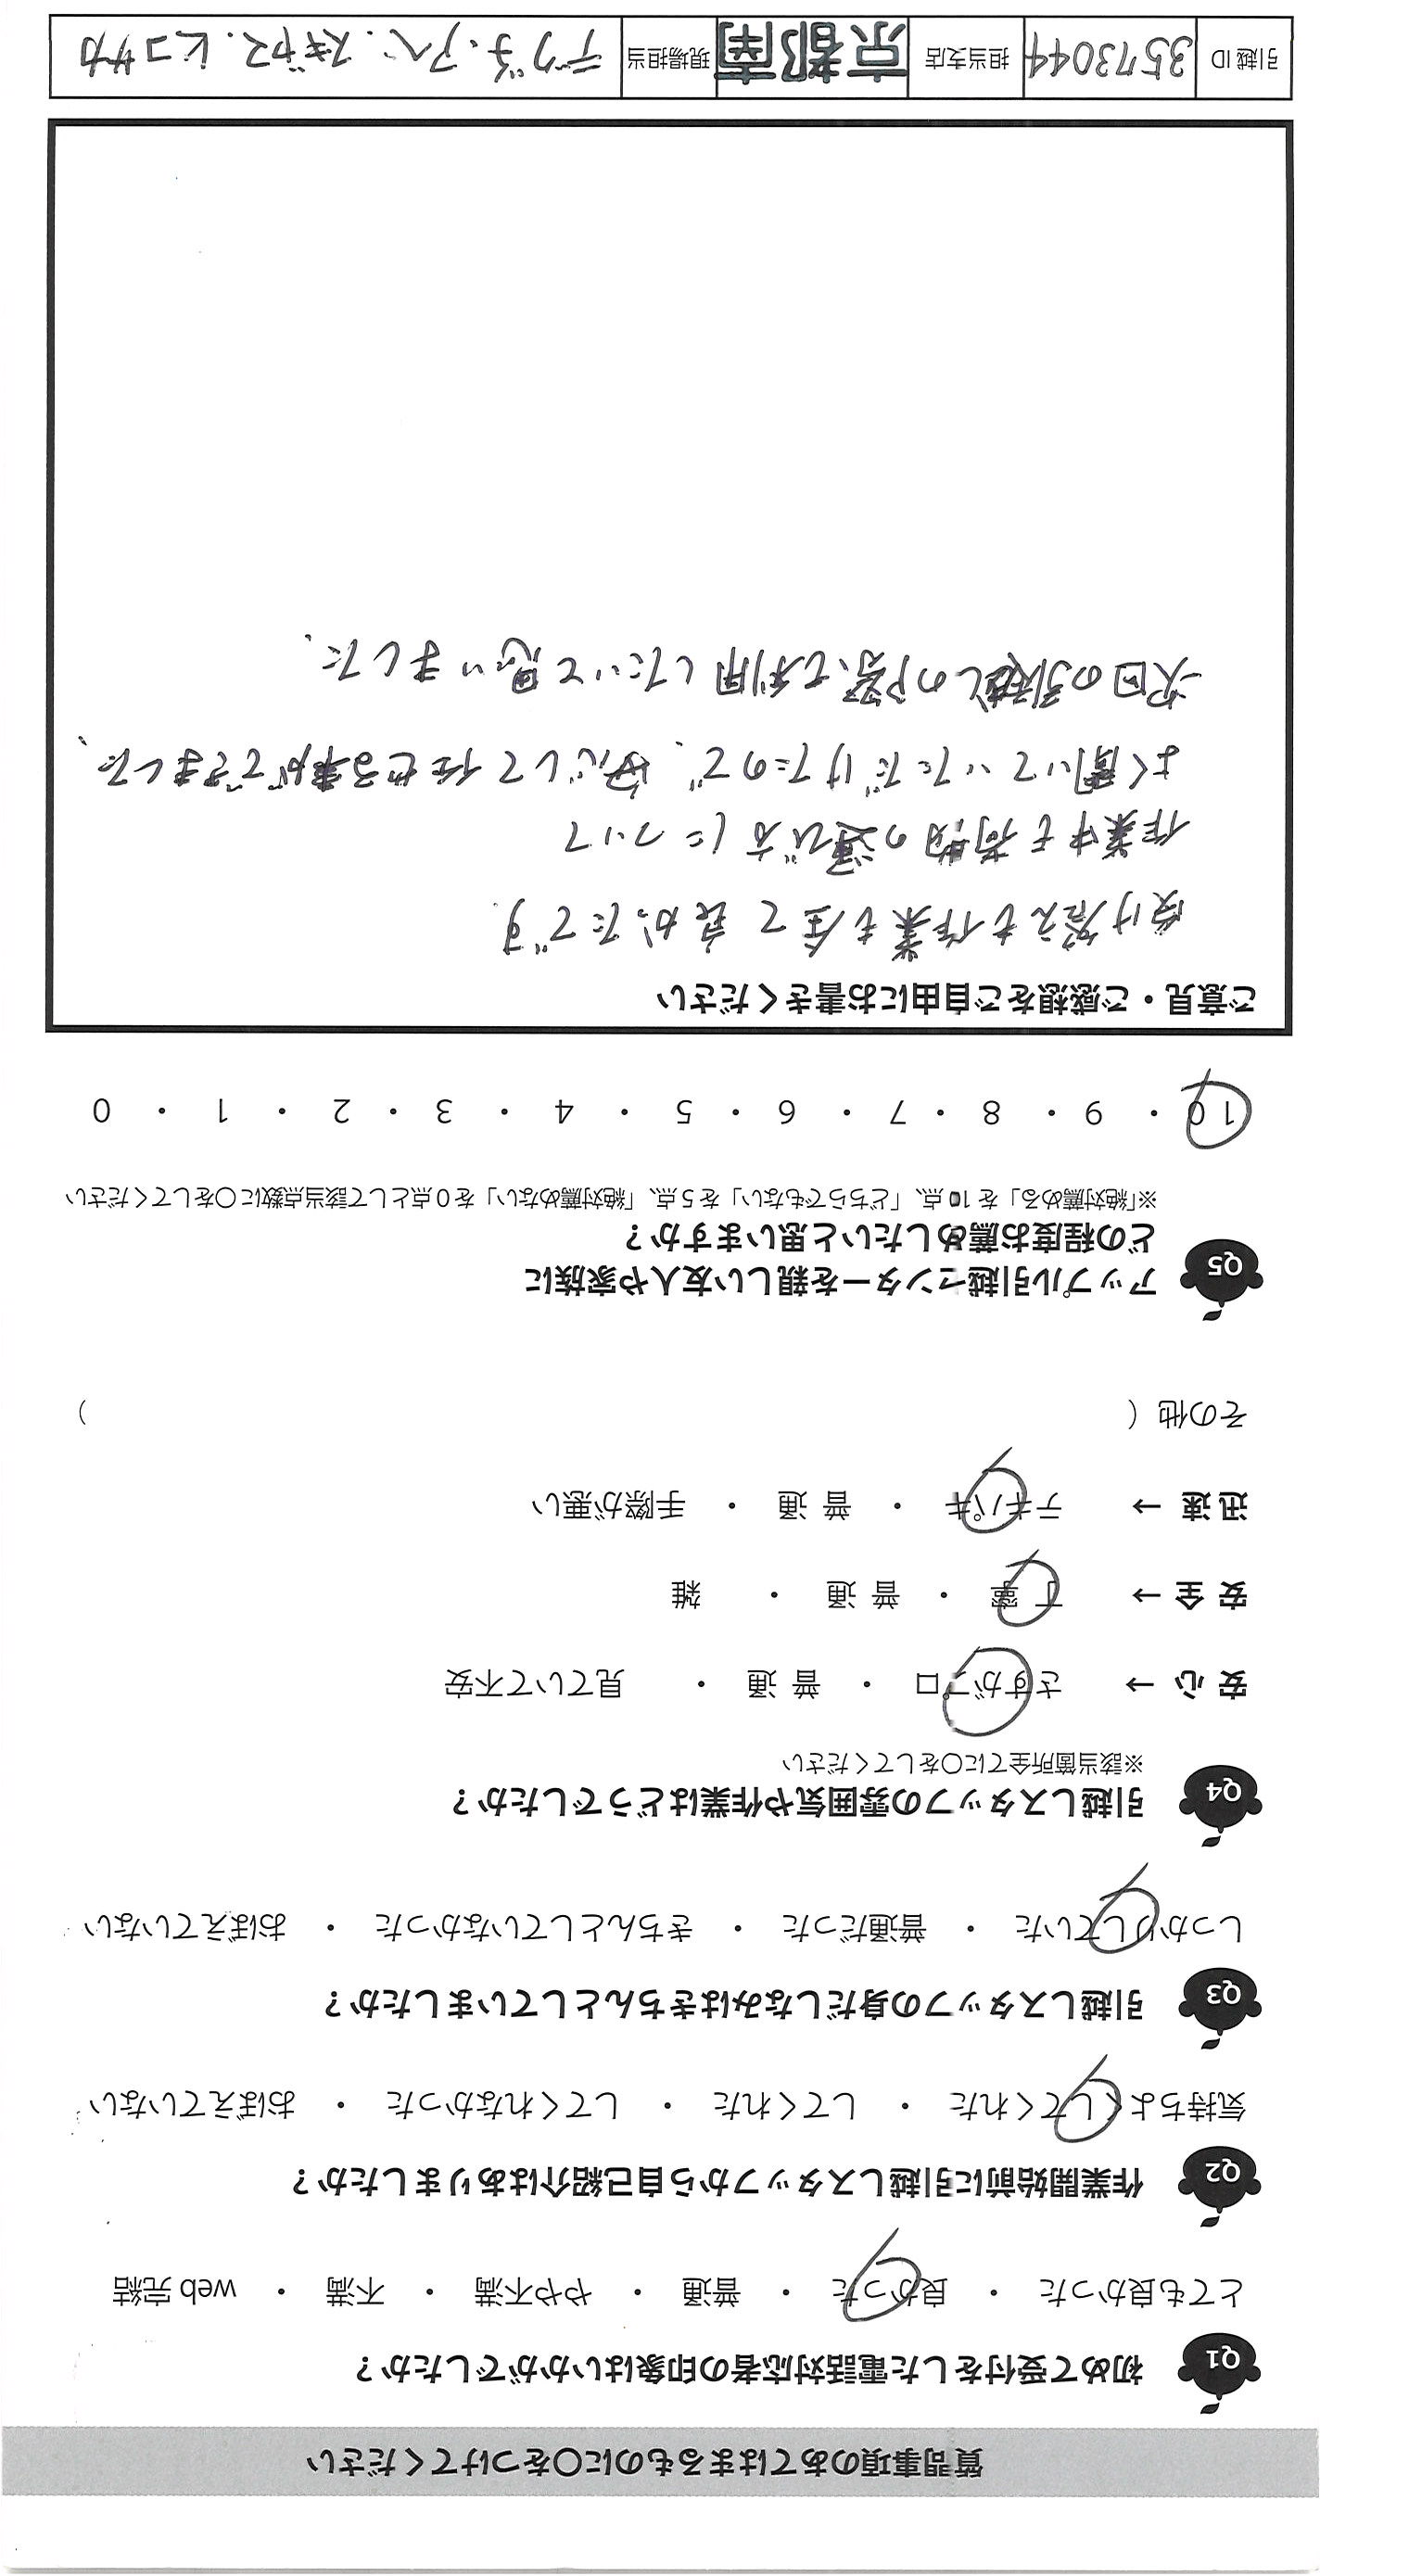 質問事項のあてはまるものに〇をつけてください
Q1 初めて受付をした電話対応者の印象はいかがでしたか？
とても良かった ・ 良かった ・ 普通 ・ やや不満 ・ 不満 ・ web 完結
Q2 作業開始前に引越しスタッフから自己紹介はありましたか？
気持ちよくしてくれた ・ してくれた ・ してくれなかった ・ おぼえていない
Q3 引越しスタッフの身だしなみはきちんとしていましたか？
しっかりしていた ・ 普通だった ・ きちんとしていなかった ・ おぼえていない
Q4 引越しスタッフの雰囲気や作業はどうでしたか？
※該当箇所全てに〇をしてください
安 心 → さすがプロ ・ 普 通 ・ 見ていて不安
安 全 → 丁 寧 ・ 普 通 ・ 雑
迅 速 → テキパキ ・ 普 通 ・ 手際が悪い
その他 （ ）
Q5 アップル引越センターを親しい友人や家族に
どの程度お薦めしたいと思いますか？
※「絶対薦める」を 10 点、「どちらでもない」を 5 点、「絶対薦めない」を 0 点として該当点数に〇をしてください
10 ・ 9 ・ 8 ・ 7 ・ 6 ・ 5 ・ 4 ・ 3 ・ 2 ・ 1 ・ 0
ご意見・ご感想をご自由にお書きください
受け答えも作業も全て良かったです
作業中も荷物の運び方について
よく聞いていただけたので、安心して任せる事ができました、
次回の引越しの際も利用したいと思いました、
引越 ID 3573044 担当支店 京都南 現場担当 デグチ、アベ、スギヤマ、ヒコサカ